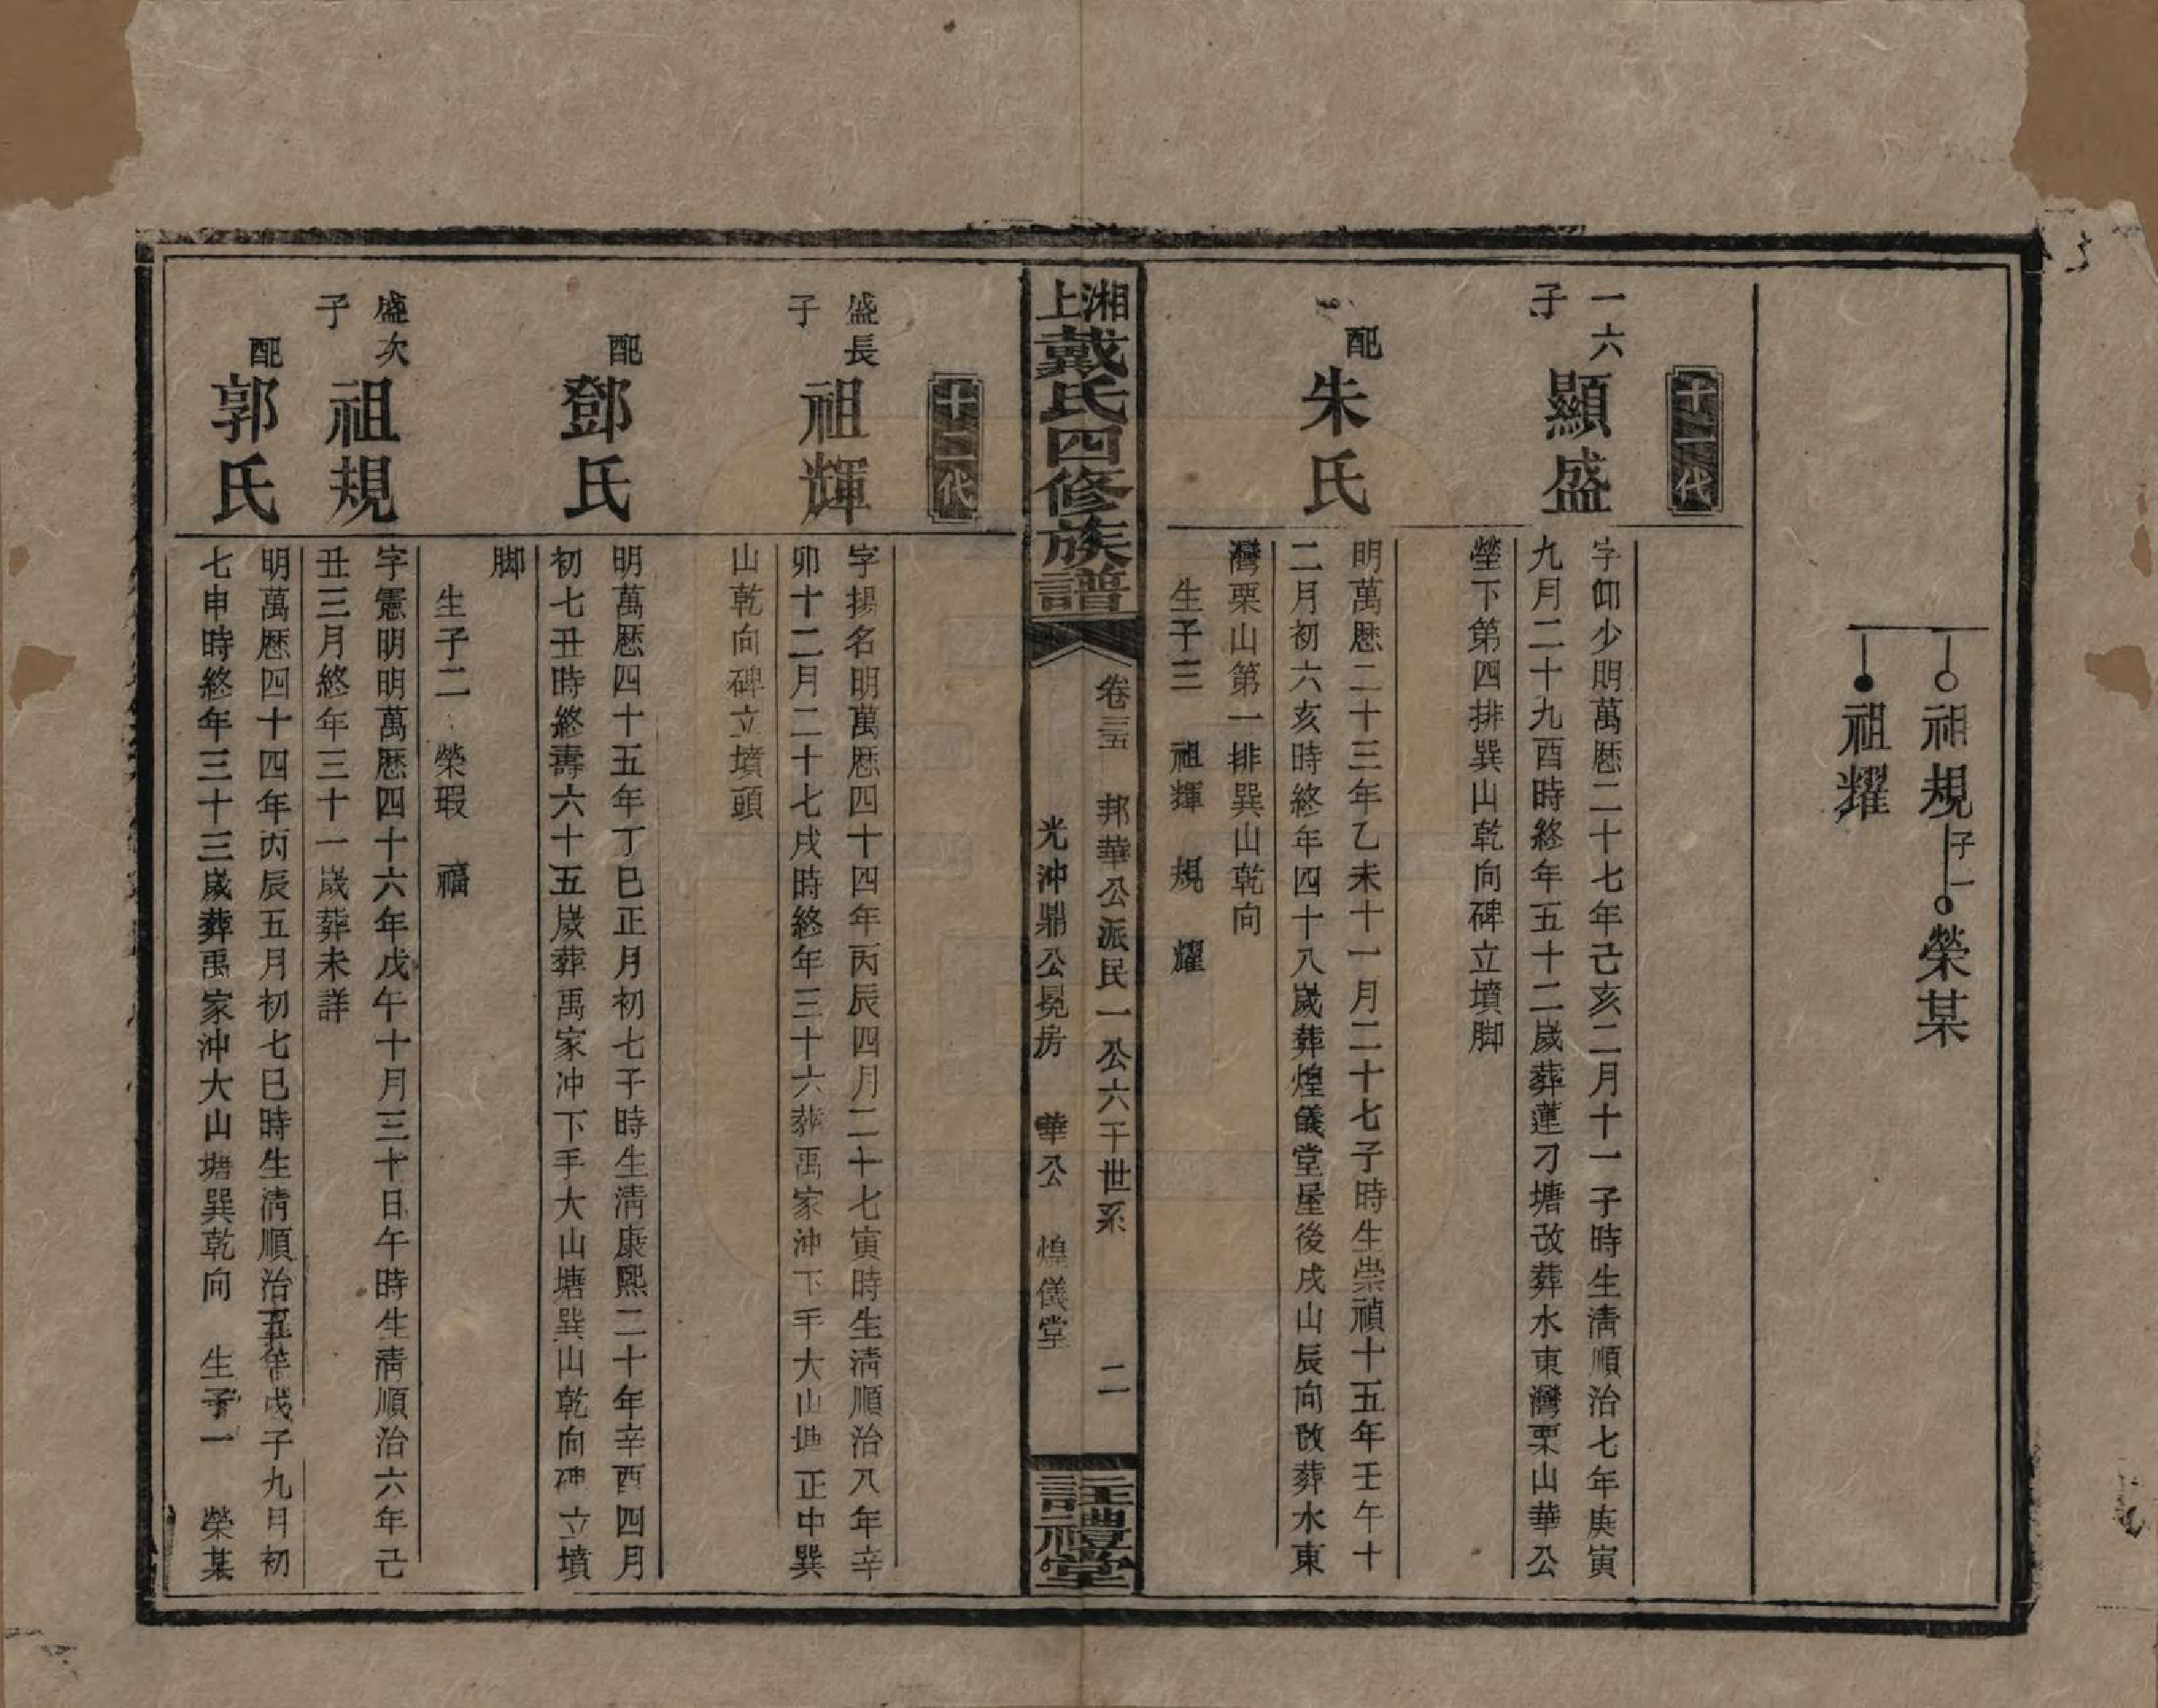 祖規 子一 榮某
祖耀
十一代
一六子 顯盛
字仰少明萬厯二十七年己亥二月十一子時生清順治七年庚寅
九月二十九酉時終年五十二歲葬蓮刁塘改葬水東灣栗山華公
塋下第四排巽山乾向碑立墳脚
配 朱氏
明萬厯二十三年乙未十一月二十七子時生崇禎十五年壬午十
二月初六亥時終年四十八歲葬煌儀堂屋後戌山辰向改葬水東
灣栗山第一排巽山乾向
生子三 祖輝 規 耀
湘上戴氏四修族譜
卷三五 邦華公派民一公六千世系 二
光沖鼎公晃房 華公 煌儀堂
註禮堂
十二代
盛長子 祖輝
字揚名明萬厯四十四年丙辰四月二十七寅時生清順治八年辛
卯十二月二十七戌時終年三十六葬禹家沖下手大山塘正中巽
山乾向碑立墳頭
配 鄧氏
明萬厯四十五年丁巳正月初七子時生清康熙二十年辛酉四月
初七丑時終壽六十五歲葬禹家冲下手大山塘巽山乾向碑立墳
脚
生子二 榮瑕 福
盛次子 祖規
字憲明明萬厯四十六年戊午十月三十日午時生清順治六年己
丑三月終年三十一歲葬未詳
配 郭氏
明萬厯四十四年丙辰五月初七巳時生清順治五年戊子九月初
七申時終年三十三歲葬禹家沖大山塘巽乾向 生子一 榮某